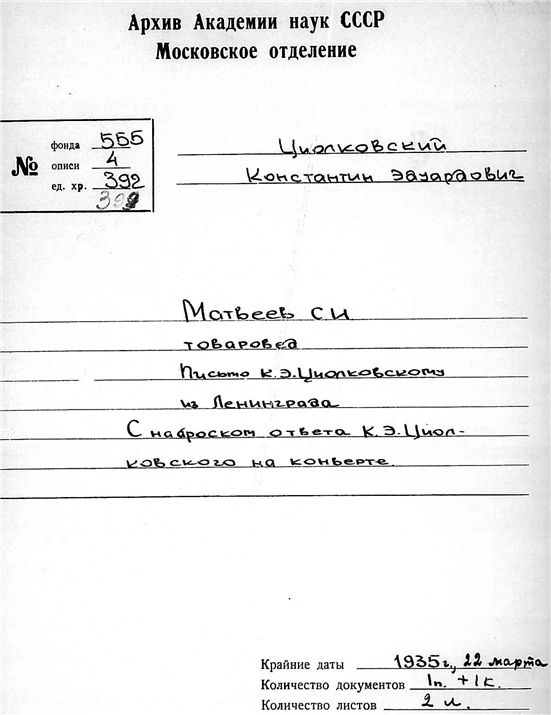 Архив Академии наук СССР
Московское отделение
№
фонда 555
описи 4
ед. хр. 392
Циолковский
Константин Эдуардович
Матвеев С.И.
товаровед
Письмо К.Э.Циолковскому
из Ленинграда
С наброском ответа К.Э.Циол-
ковского на конверте.
Крайние даты 1935 г., 22 марта
Количество документов 1п. + 1к.
Количество листов 2 л.